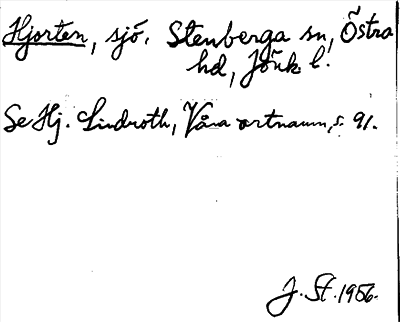 Hjorten, sjö. Stenberga sn, Östra
hd, Jönk l.
Se Hj. Lindroth, Våra ortnamn, s. 91.
J. St. 1956.